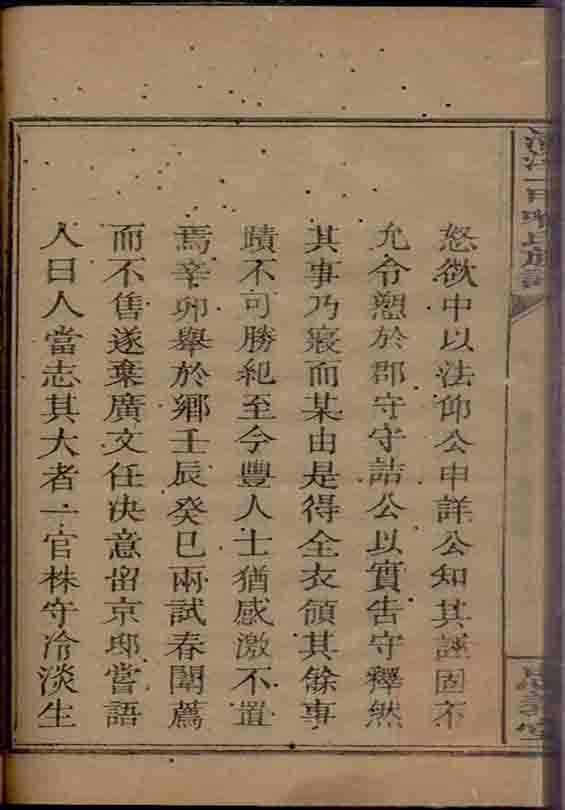 怒欲中以法仰公申詳公知其誣固不
允令愬於郡守守詰公以實告守釋然
其事乃寢而某由是得全衣頒其餘事
蹟不可勝紀至今豐人士猶感激不置
焉辛卯舉於鄉壬辰癸巳兩試春闈薦
而不售遂棄廣文任决意留京邸嘗語
人曰人當志其大者一官株守冷淡生